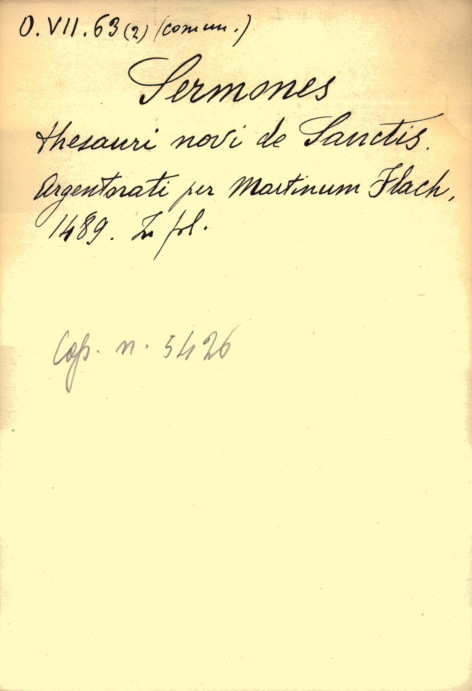 O.VII.63(2) (comun.)
Sermones
thesauri novi de Sanctis.
Argentorati per Martinum Flach,
1489. In fol.
Cop. n. 5426